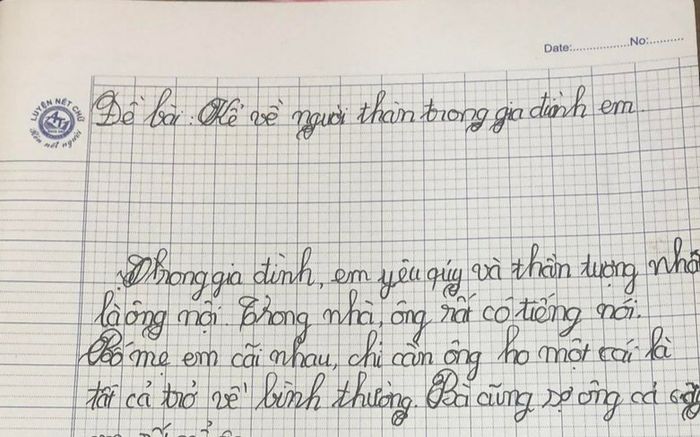 Date:................No:..........
LUYỆN NÉT CHỮ
Rèn nết người
Đề bài: Kể về người thân trong gia đình em.
Trong gia đình, em yêu quý và thần tượng nhất
là ông nội. Trong nhà, ông rất có tiếng nói.
Bố mẹ em cãi nhau, chỉ cần ông ho một cái là
tất cả trở về bình thường. Bà cũng sợ ông cả